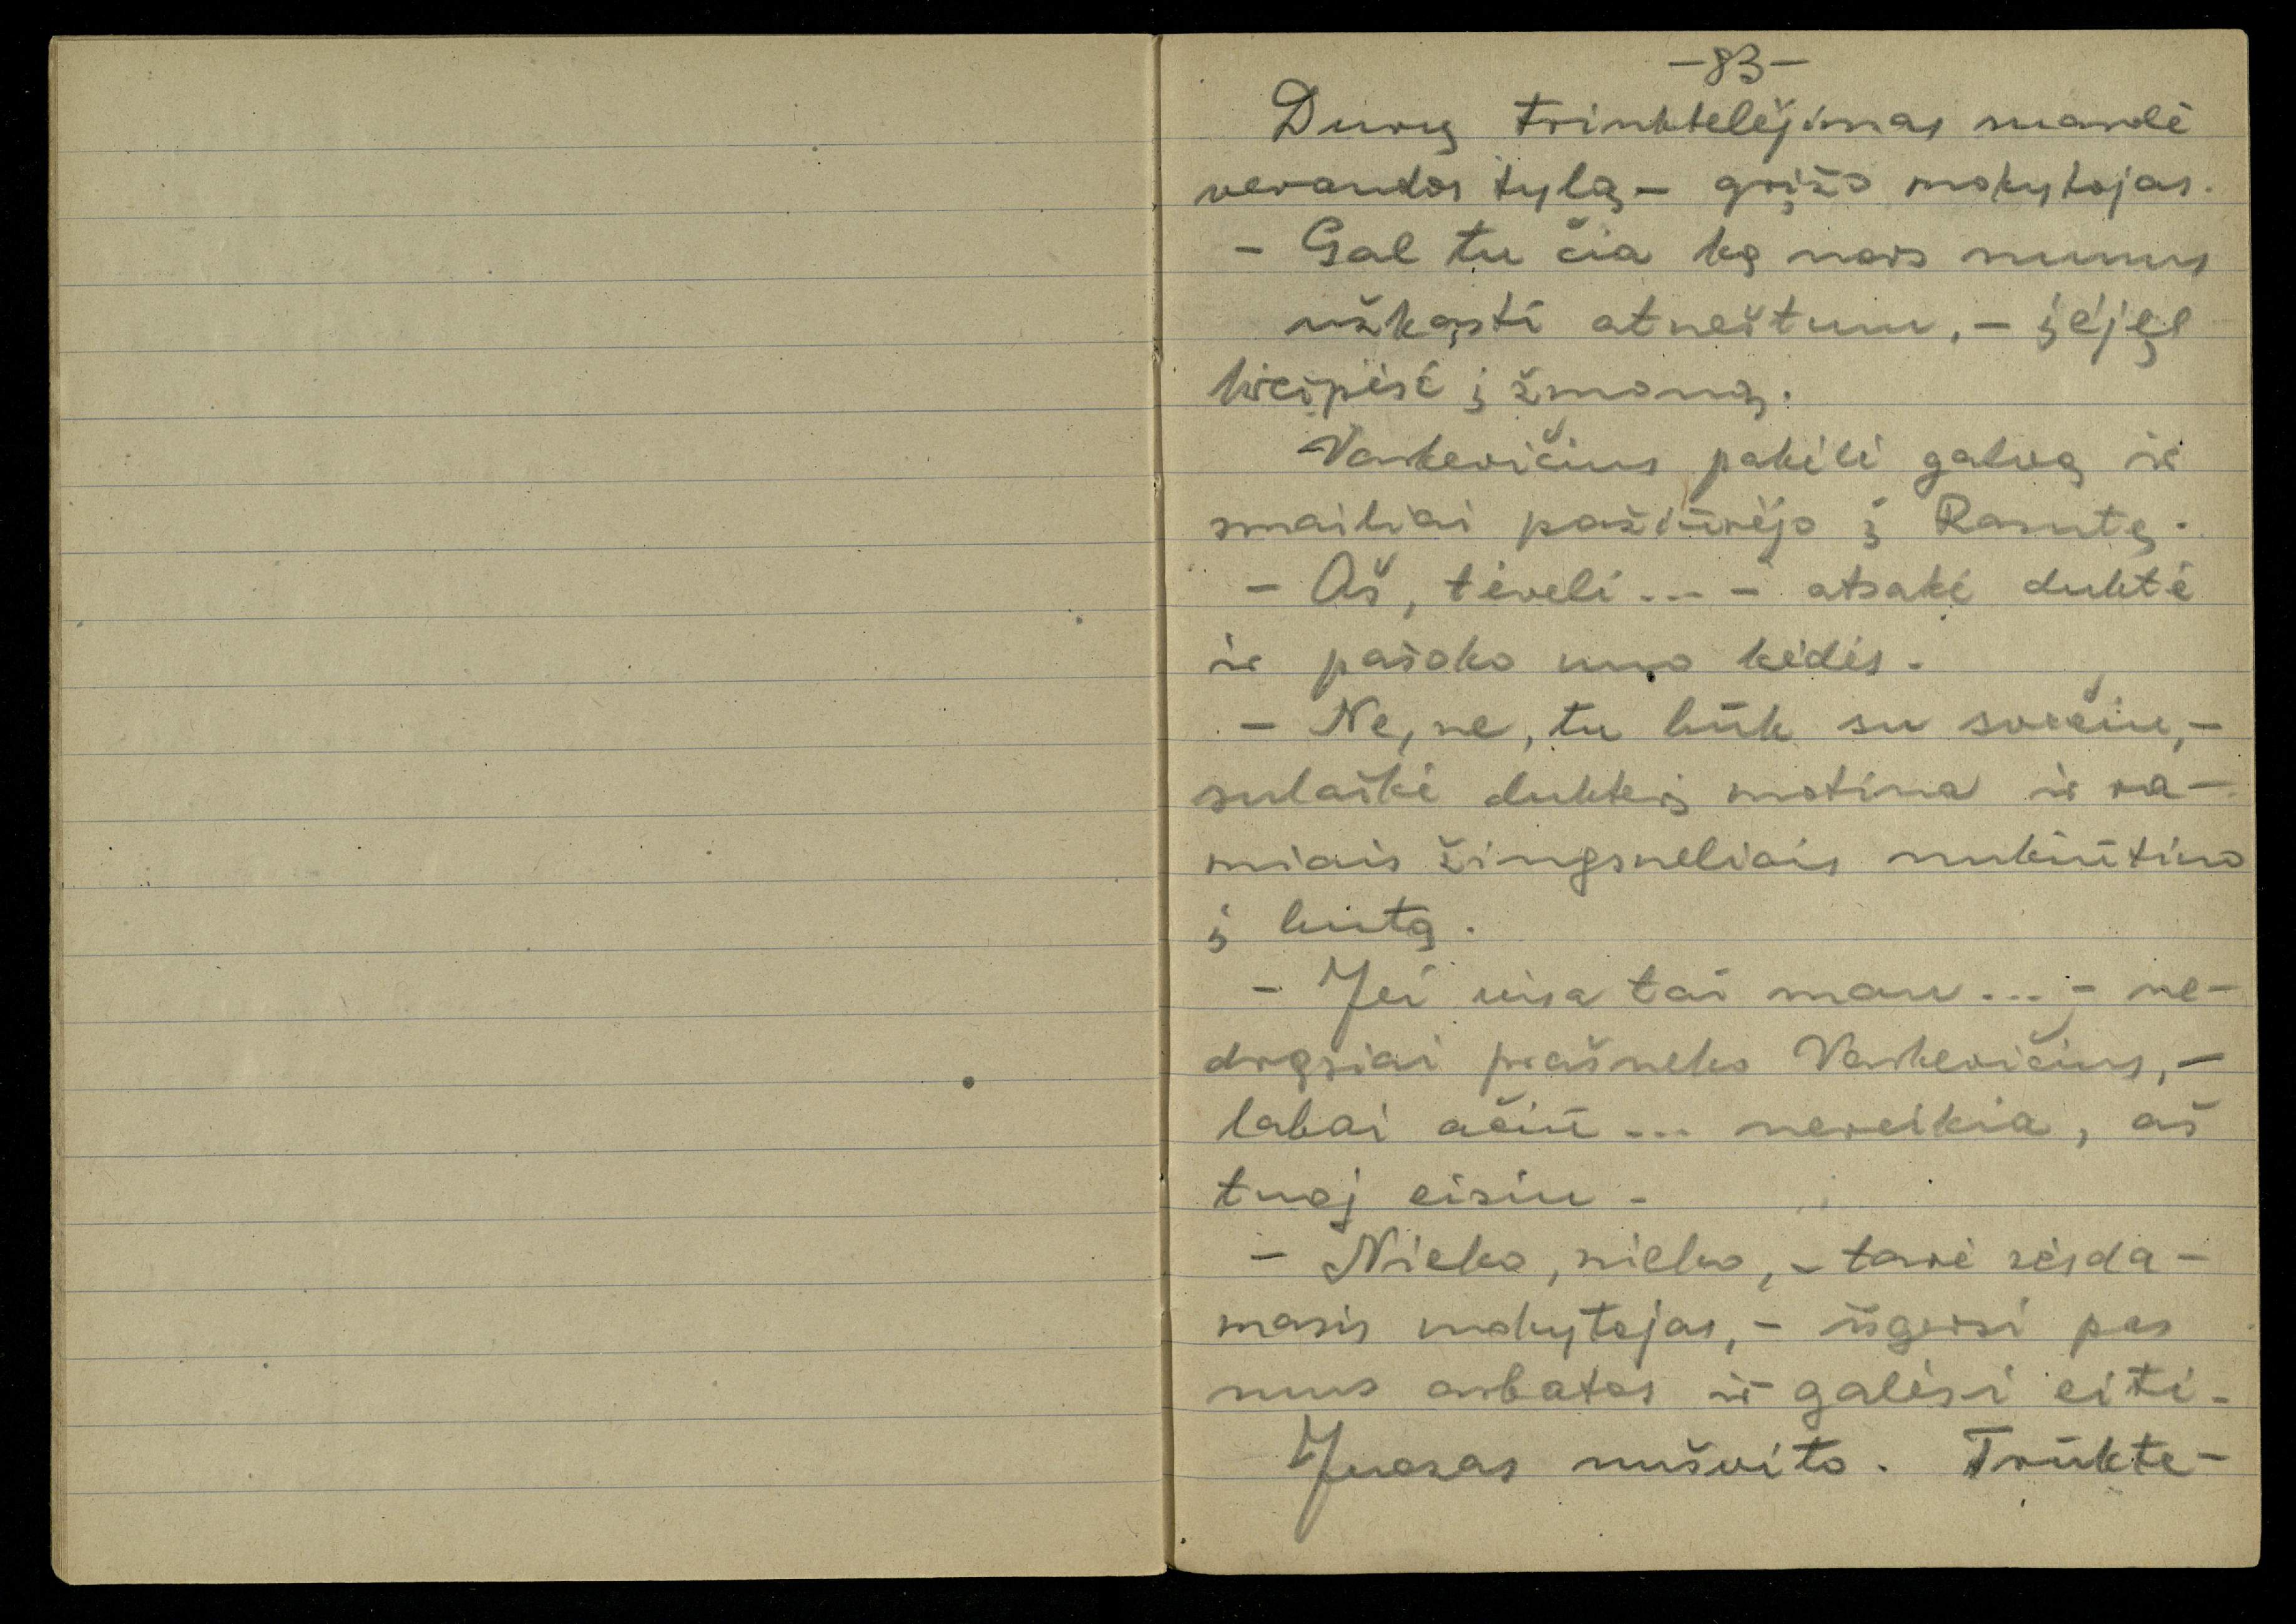 -83-
Durų trinktelėjimas suardė
verandos tylą - grįžo mokytojas.
- Gal tu čia ką nors mums
užkąsti atneštum, - įėjęs
kreipėsi į žmoną.
Varkevičius pakėlė galvą ir
smailiai pažiūrėjo į Rasutę.
- Aš, tėveli... - atsakė duktė
ir pašoko nuo kėdės.
- Ne, ne, tu būk su svečiu, -
sulaikė dukterį motina ir ra-
miais žingsneliais nukiūtino
į butą.
- Jei visa tai man... - ne-
drąsiai prašneko Varkevičius, -
labai ačiū... nereikia, aš
tuoj eisiu.
- Nieko, nieko, - tarė sėsda-
masis mokytojas, - išgersi pas
mus arbatos ir galėsi eiti.
Juozas nušvito. Trūkte-